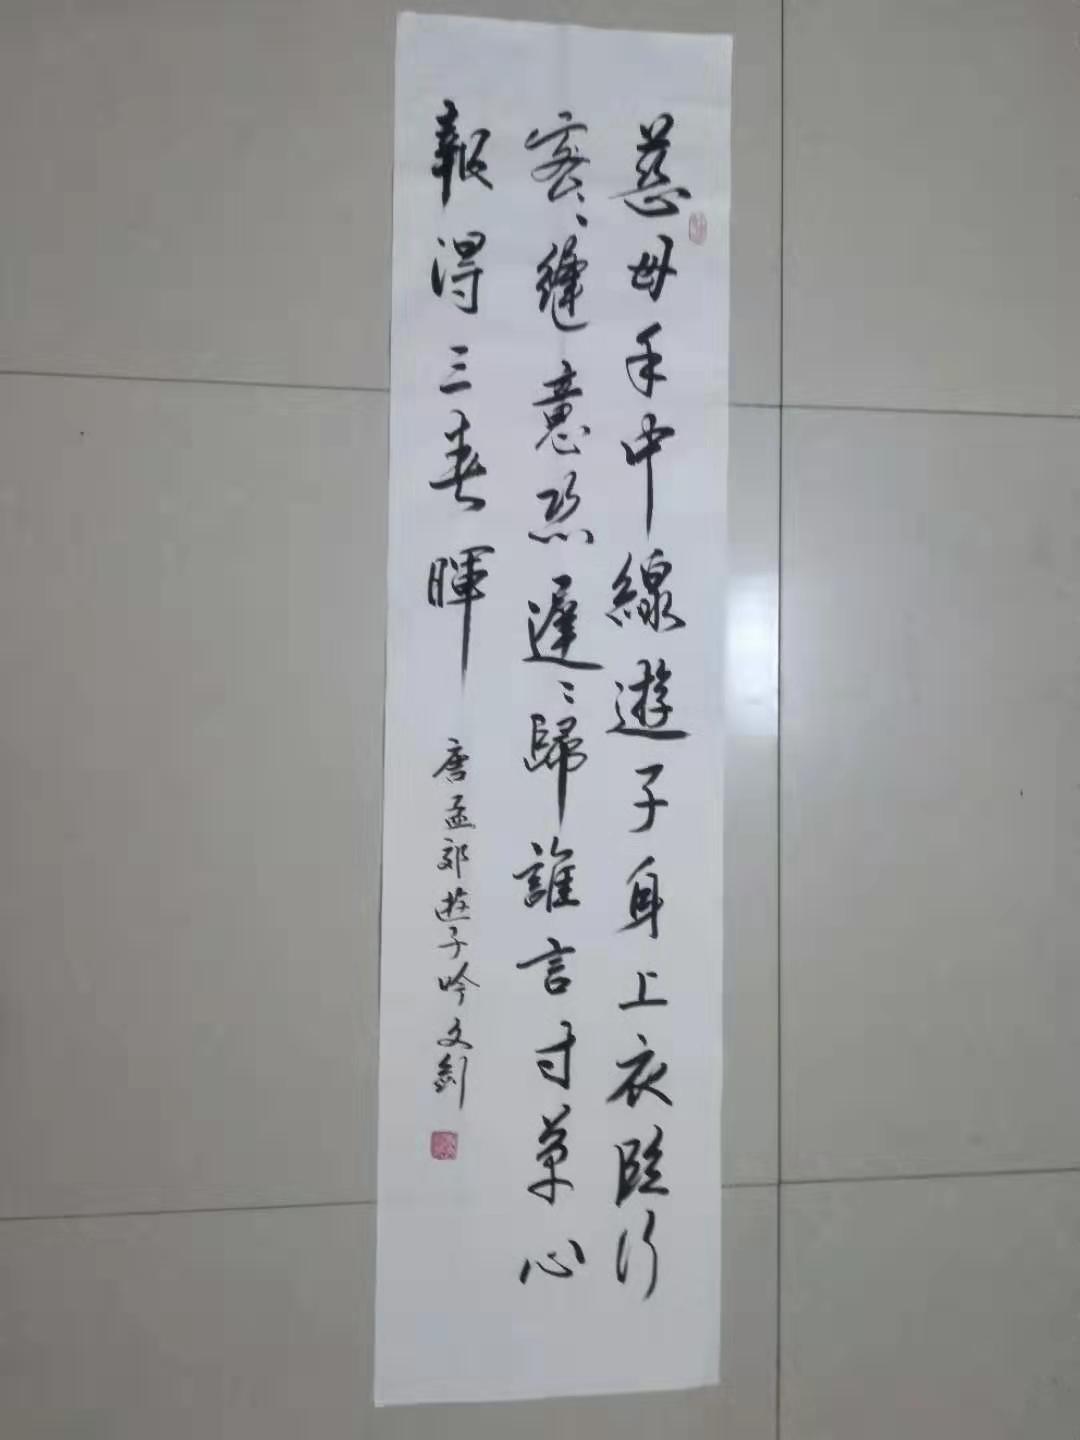 慈母手中線遊子身上衣臨行
密々縫意恐遲々歸誰言寸草心
報得三春暉
唐孟郊遊子吟文劍